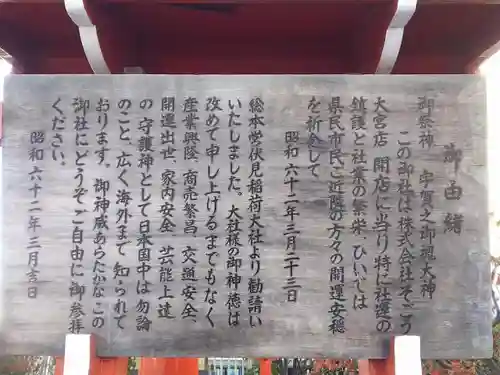 御由緒
御祭神 宇賀之御魂大神
この御社は株式会社そごう
大宮店 開店に当り特に社運の
鎮護と社業の繁栄、ひいては
県民市民ご近隣の方々の開運安穏
を祈念して
昭和六十二年三月二十三日
総本営伏見稲荷大社より勧請い
いたしました。大社様の御神徳は
改めて申し上げるまでもなく
産業興隆、商売繁昌、交通安全、
開運出世、家内安全、芸能上達
の守護神として日本国中は勿論
のこと、広く海外まで知られて
おります。御神威あらたかなこの
御社にどうぞご自由に御参拝
ください。
昭和六十二年三月吉日